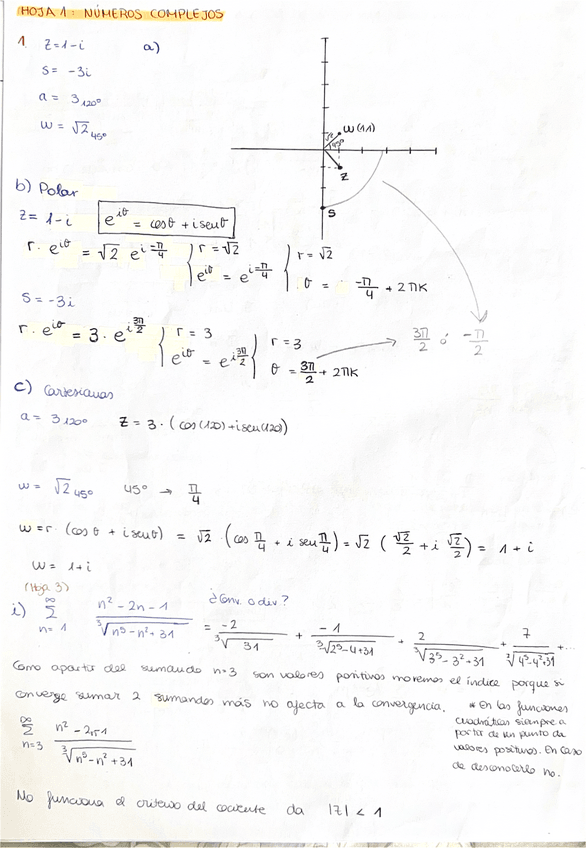 HOJA 1: NÚMEROS COMPLEJOS
1. z = 1-i a)
s = -3i
a = 3 120º
w = √2 45º
w(1,1)
√2 45º
z
s
b) Polar
z = 1-i e^{iθ} = cosθ + i senθ
r · e^{iθ} = √2 e^{i -π/4} } r = √2 e^{iθ} = e^{i -π/4} { r = √2 θ = -π/4 + 2πK
s = -3i
r · e^{iθ} = 3 · e^{i 3π/2} } r = 3 e^{iθ} = e^{i 3π/2} } r = 3 θ = 3π/2 + 2πK → 3π/2 ó -π/2
c) Cartesianas
a = 3 120º z = 3 · (cos(120) + i sen(120))
w = √2 45º 45º → π/4
w = r · (cos θ + i senθ) = √2 · (cos π/4 + i sen π/4) = √2 (√2/2 + i √2/2) = 1 + i
w = 1+i
(Hoja 3)
i) ∞∑n=1 (n² - 2n - 1)/∛(n⁵ - n² + 31) ¿Conv. o div? = -2/∛31 + -1/∛(2⁵-4+31) + 2/∛(3⁵-3²+31) + 7/∛(4⁵-4²+31) + ...
Como apartir del sumando n=3 son valores positivos movemos el índice porque si
converge sumar 2 sumandos más no afecta a la convergencia.
* En las funciones
cuadráticas siempre a
partir de un punto da
valores positivos. En caso
de desconocerlo no.
∞∑n=3 (n² - 2n-1)/∛(n⁵ - n² + 31)
No funciona el criterio del cociente da |z| < 1